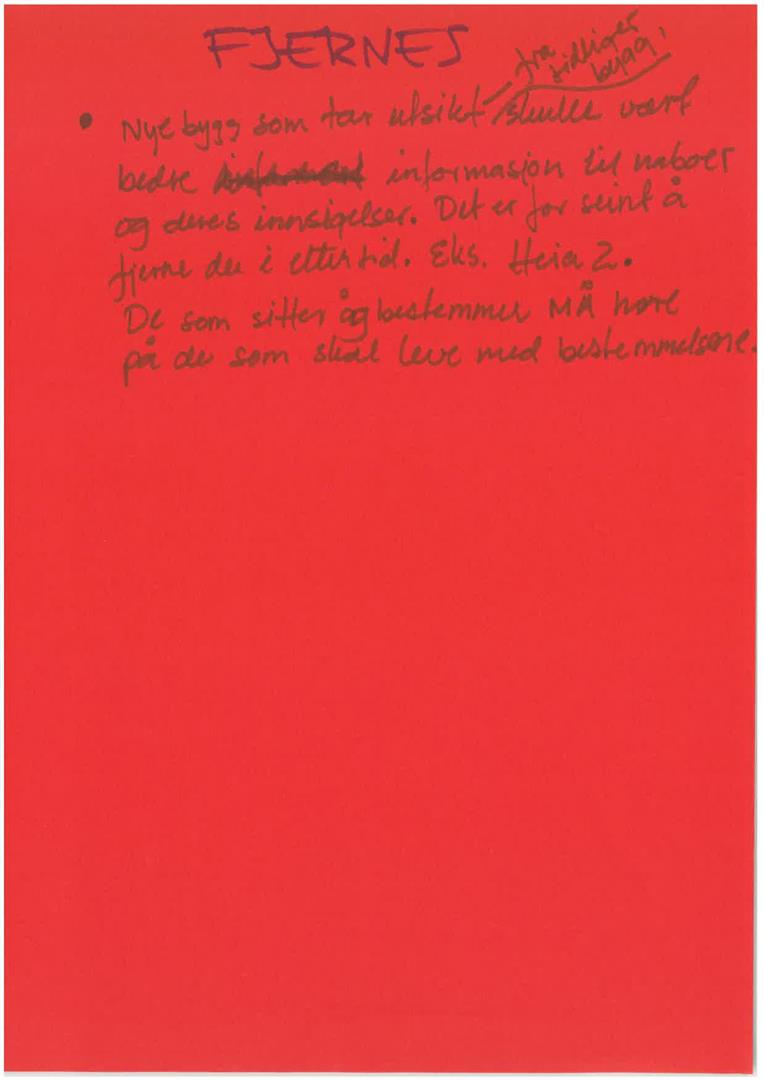 FJERNES
fra
tidligere
bygg,
• Nye bygg som tar utsikt skulle vært
bedre informasjon til naboer
og deres innsigelser. Det er for seint å
fjerne de i ettertid. Eks. Heia 2.
De som sitter åg bestemmer MÅ høre
på de som skal leve med bestemmelsene.